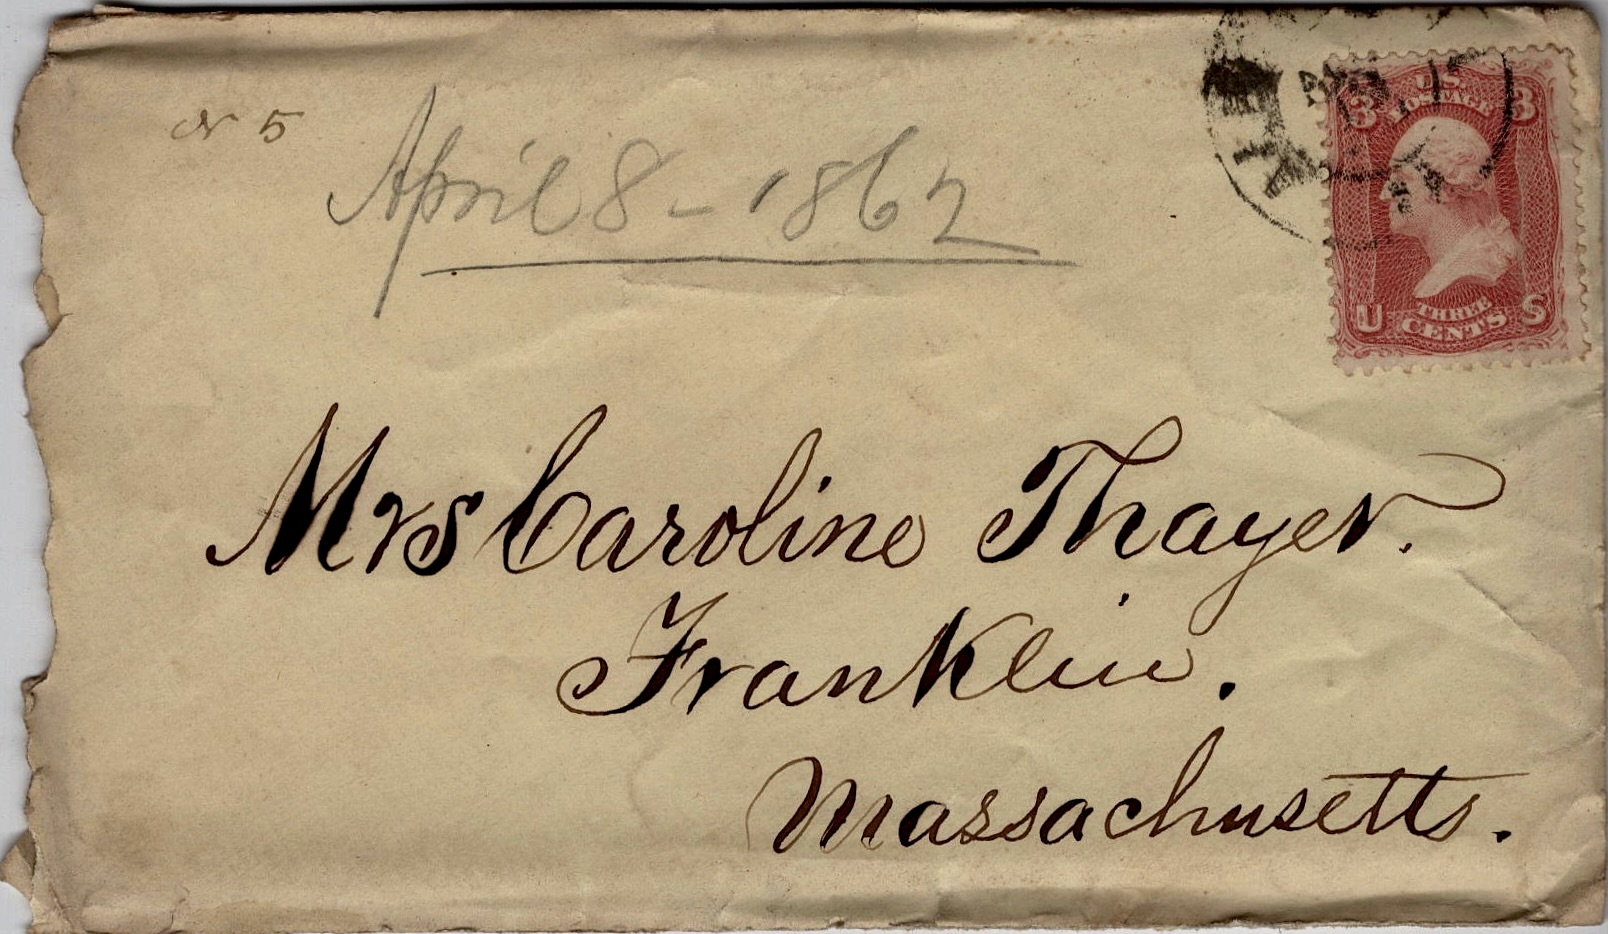 N 5
April 8 - 1862
3 U.S. 3
POSTAGE
U THREE S
CENTS
Mrs Caroline Thayer.
Franklin.
Massachusetts.